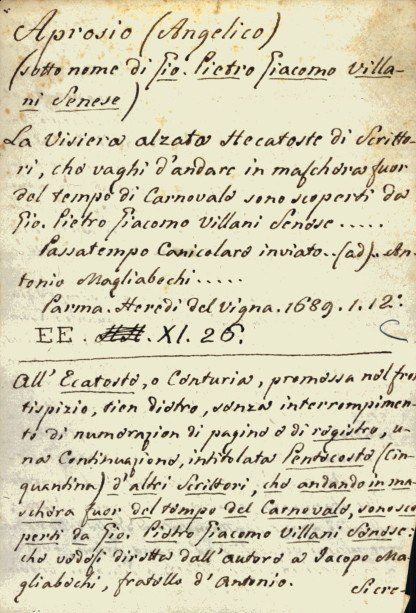 Aprosio (Angelico)
(sotto nome di Gio. Pietro Giacomo Villa-
ni Senese)
La Visiera alzata Hecatoste di Scritto-
ri, che vaghi d'andare in maschera fuor
del tempo di Carnovale sono scoperti da
Gio. Pietro Giacomo Villani Senese.....
Passatempo Canicolare inviato..(ad).. An-
tonio Magliabechi.....
Parma. Heredi del Vigna. 1689. 1. 12.°
EE. XI. 26.
All' Ecatoste, o Centuria, promessa nel fron
tispizio, tien dietro, senza interrompimen-
to di numerazion di pagine e di registro, u-
na Continuazione, intitolata Pentecoste (Cin-
quantina) d'altri Scrittori, che andando in ma-
schera fuor del tempo del Carnovale, sono sco
perti da Gio. Pietro Giacomo Villani Senese:
che vedesi diretta dall'autore a Jacopo Ma-
gliabechi, fratello d'Antonio.
Sicre-